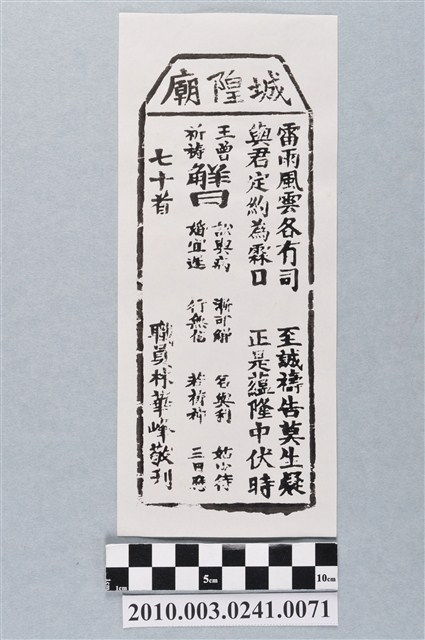 城隍廟
雷雨風雲各有司 至誠禱告莫生疑
與君定約為霖日 正是蘊隆中伏時
王曾祈禱
解曰
訟與病 漸可解 名與利 姑少待
婚宜進 行無信 若祈禱 三日應
七十首 職員林華峰敬刊
1cm 5cm 10cm
2010.003.0241.0071